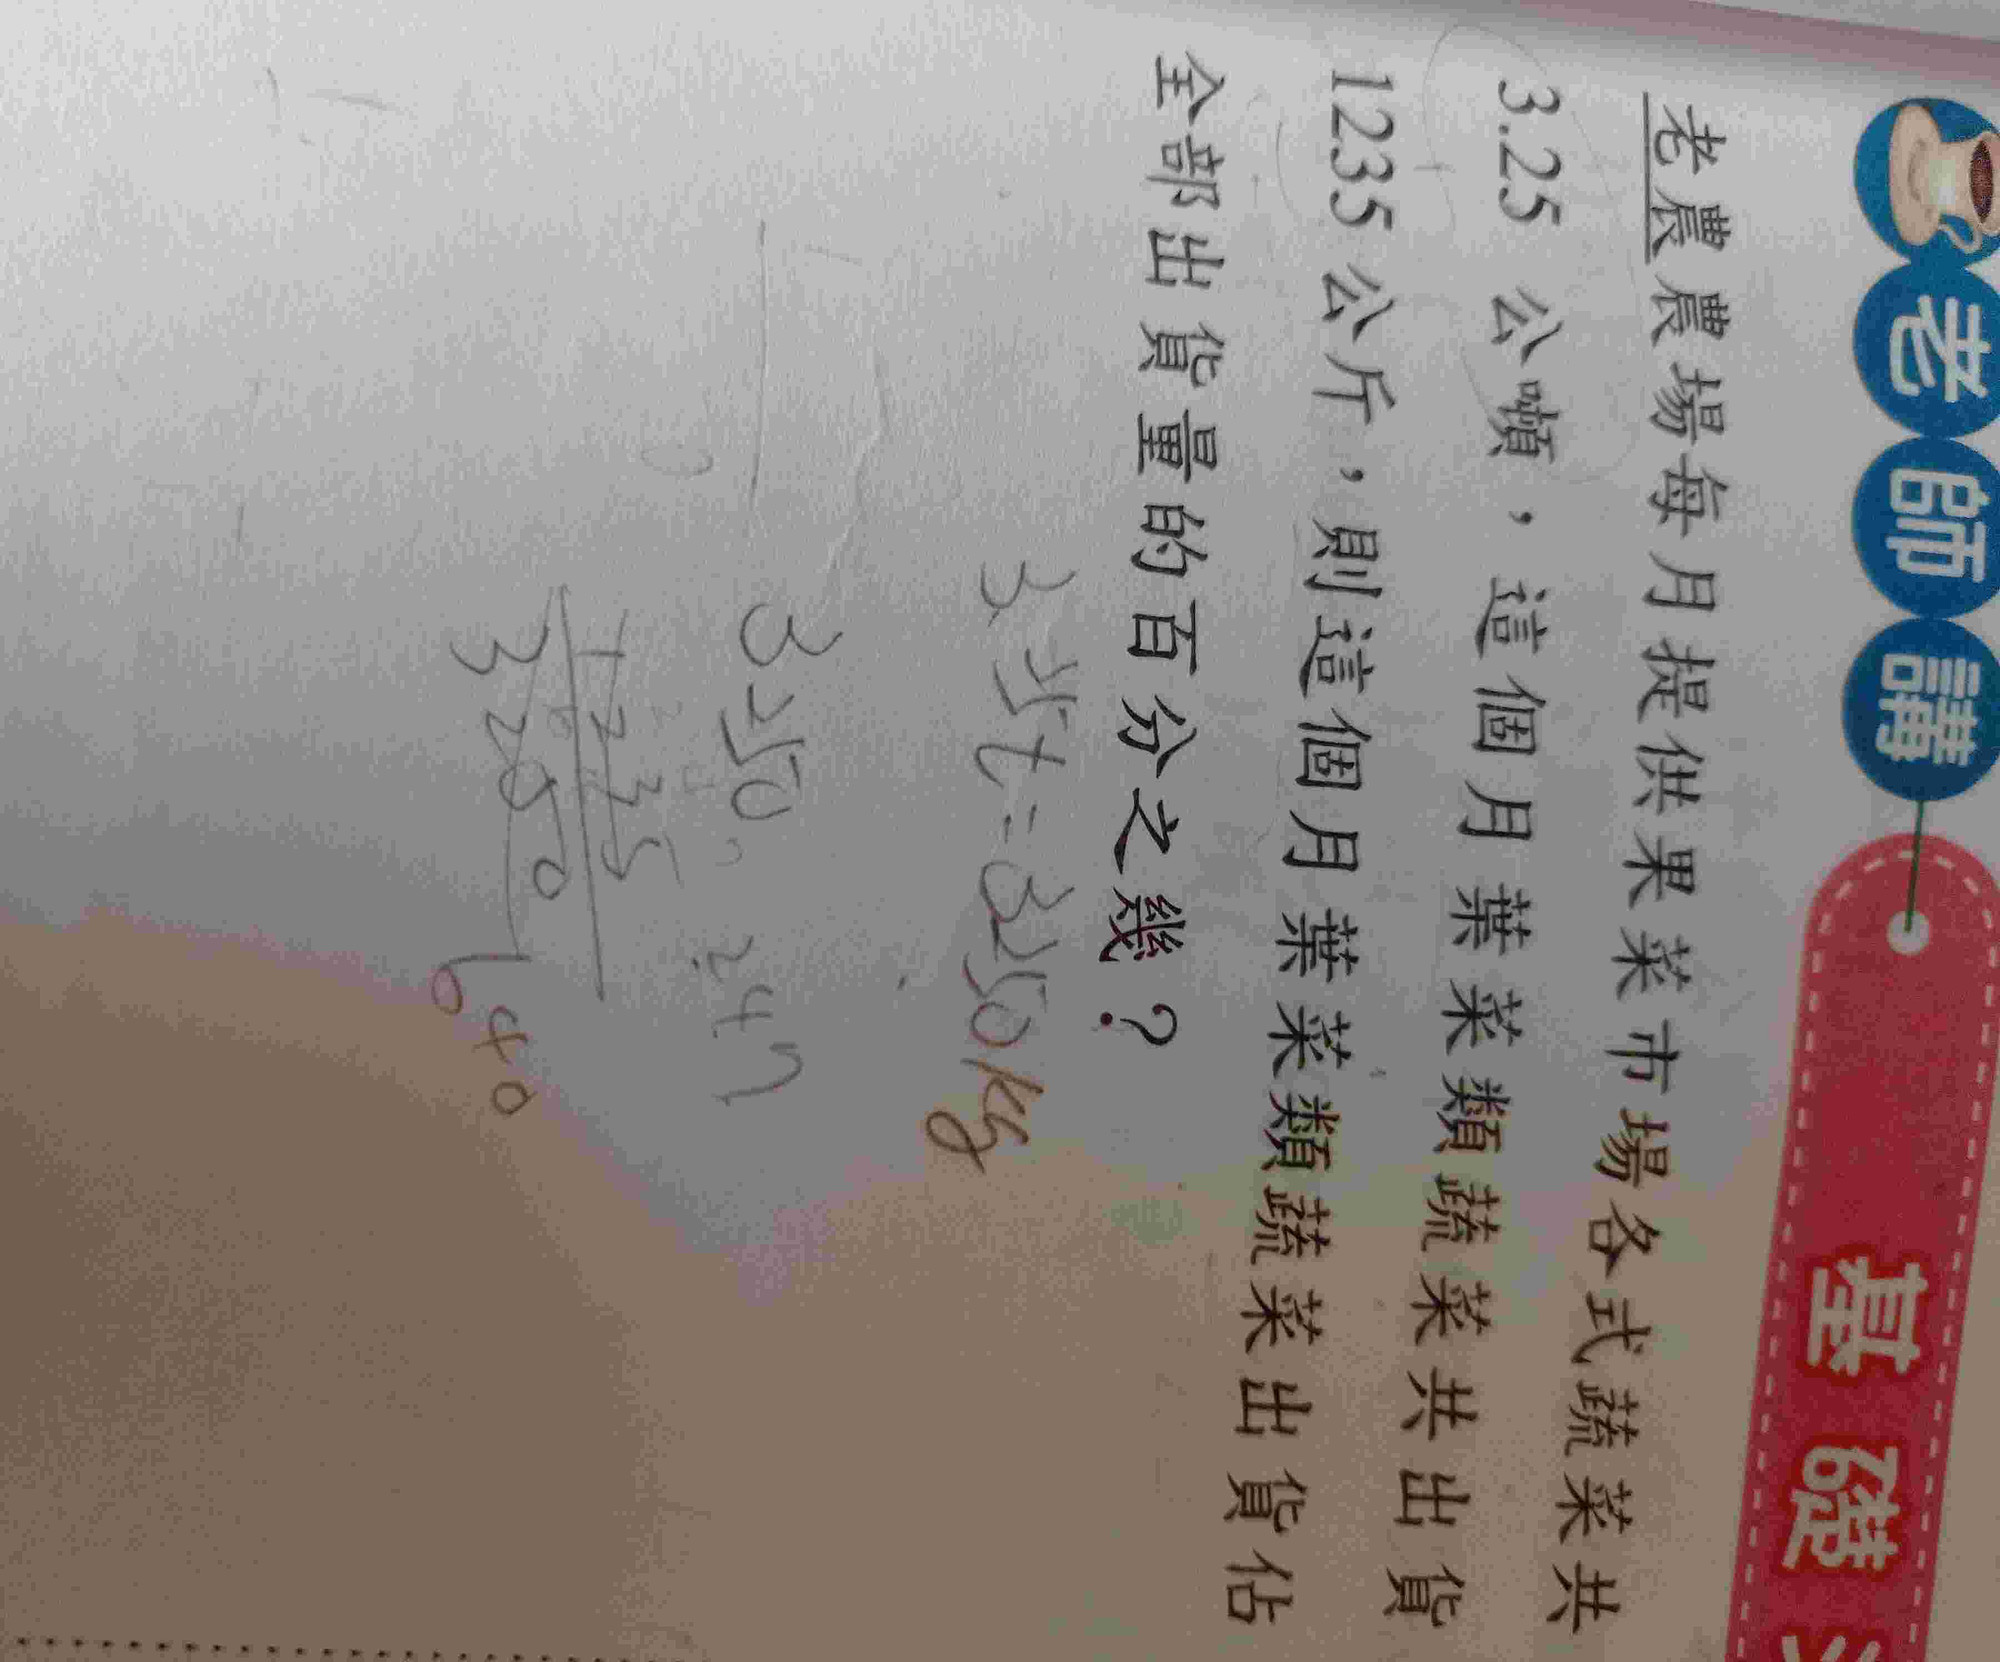 老師講
基礎
老農農場每月提供果菜市場各式蔬菜共
3.25 公噸，這個月葉菜類蔬菜共出貨
1235 公斤，則這個月葉菜類蔬菜出貨佔
全部出貨量的百分之幾？
3.25t=3250kg
3250
247
1235
3250
640